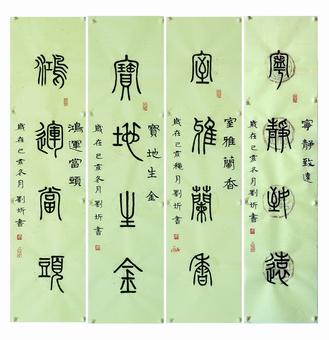 寧靜致遠
寧靜致遠
歲在己亥冬月劉圻書
室雅蘭香
室雅蘭香
歲在己亥月劉圻書
寶地生金
寶地生金
歲在己亥冬月劉圻書
鴻運當頭
鴻運當頭
歲在己亥冬月劉圻書